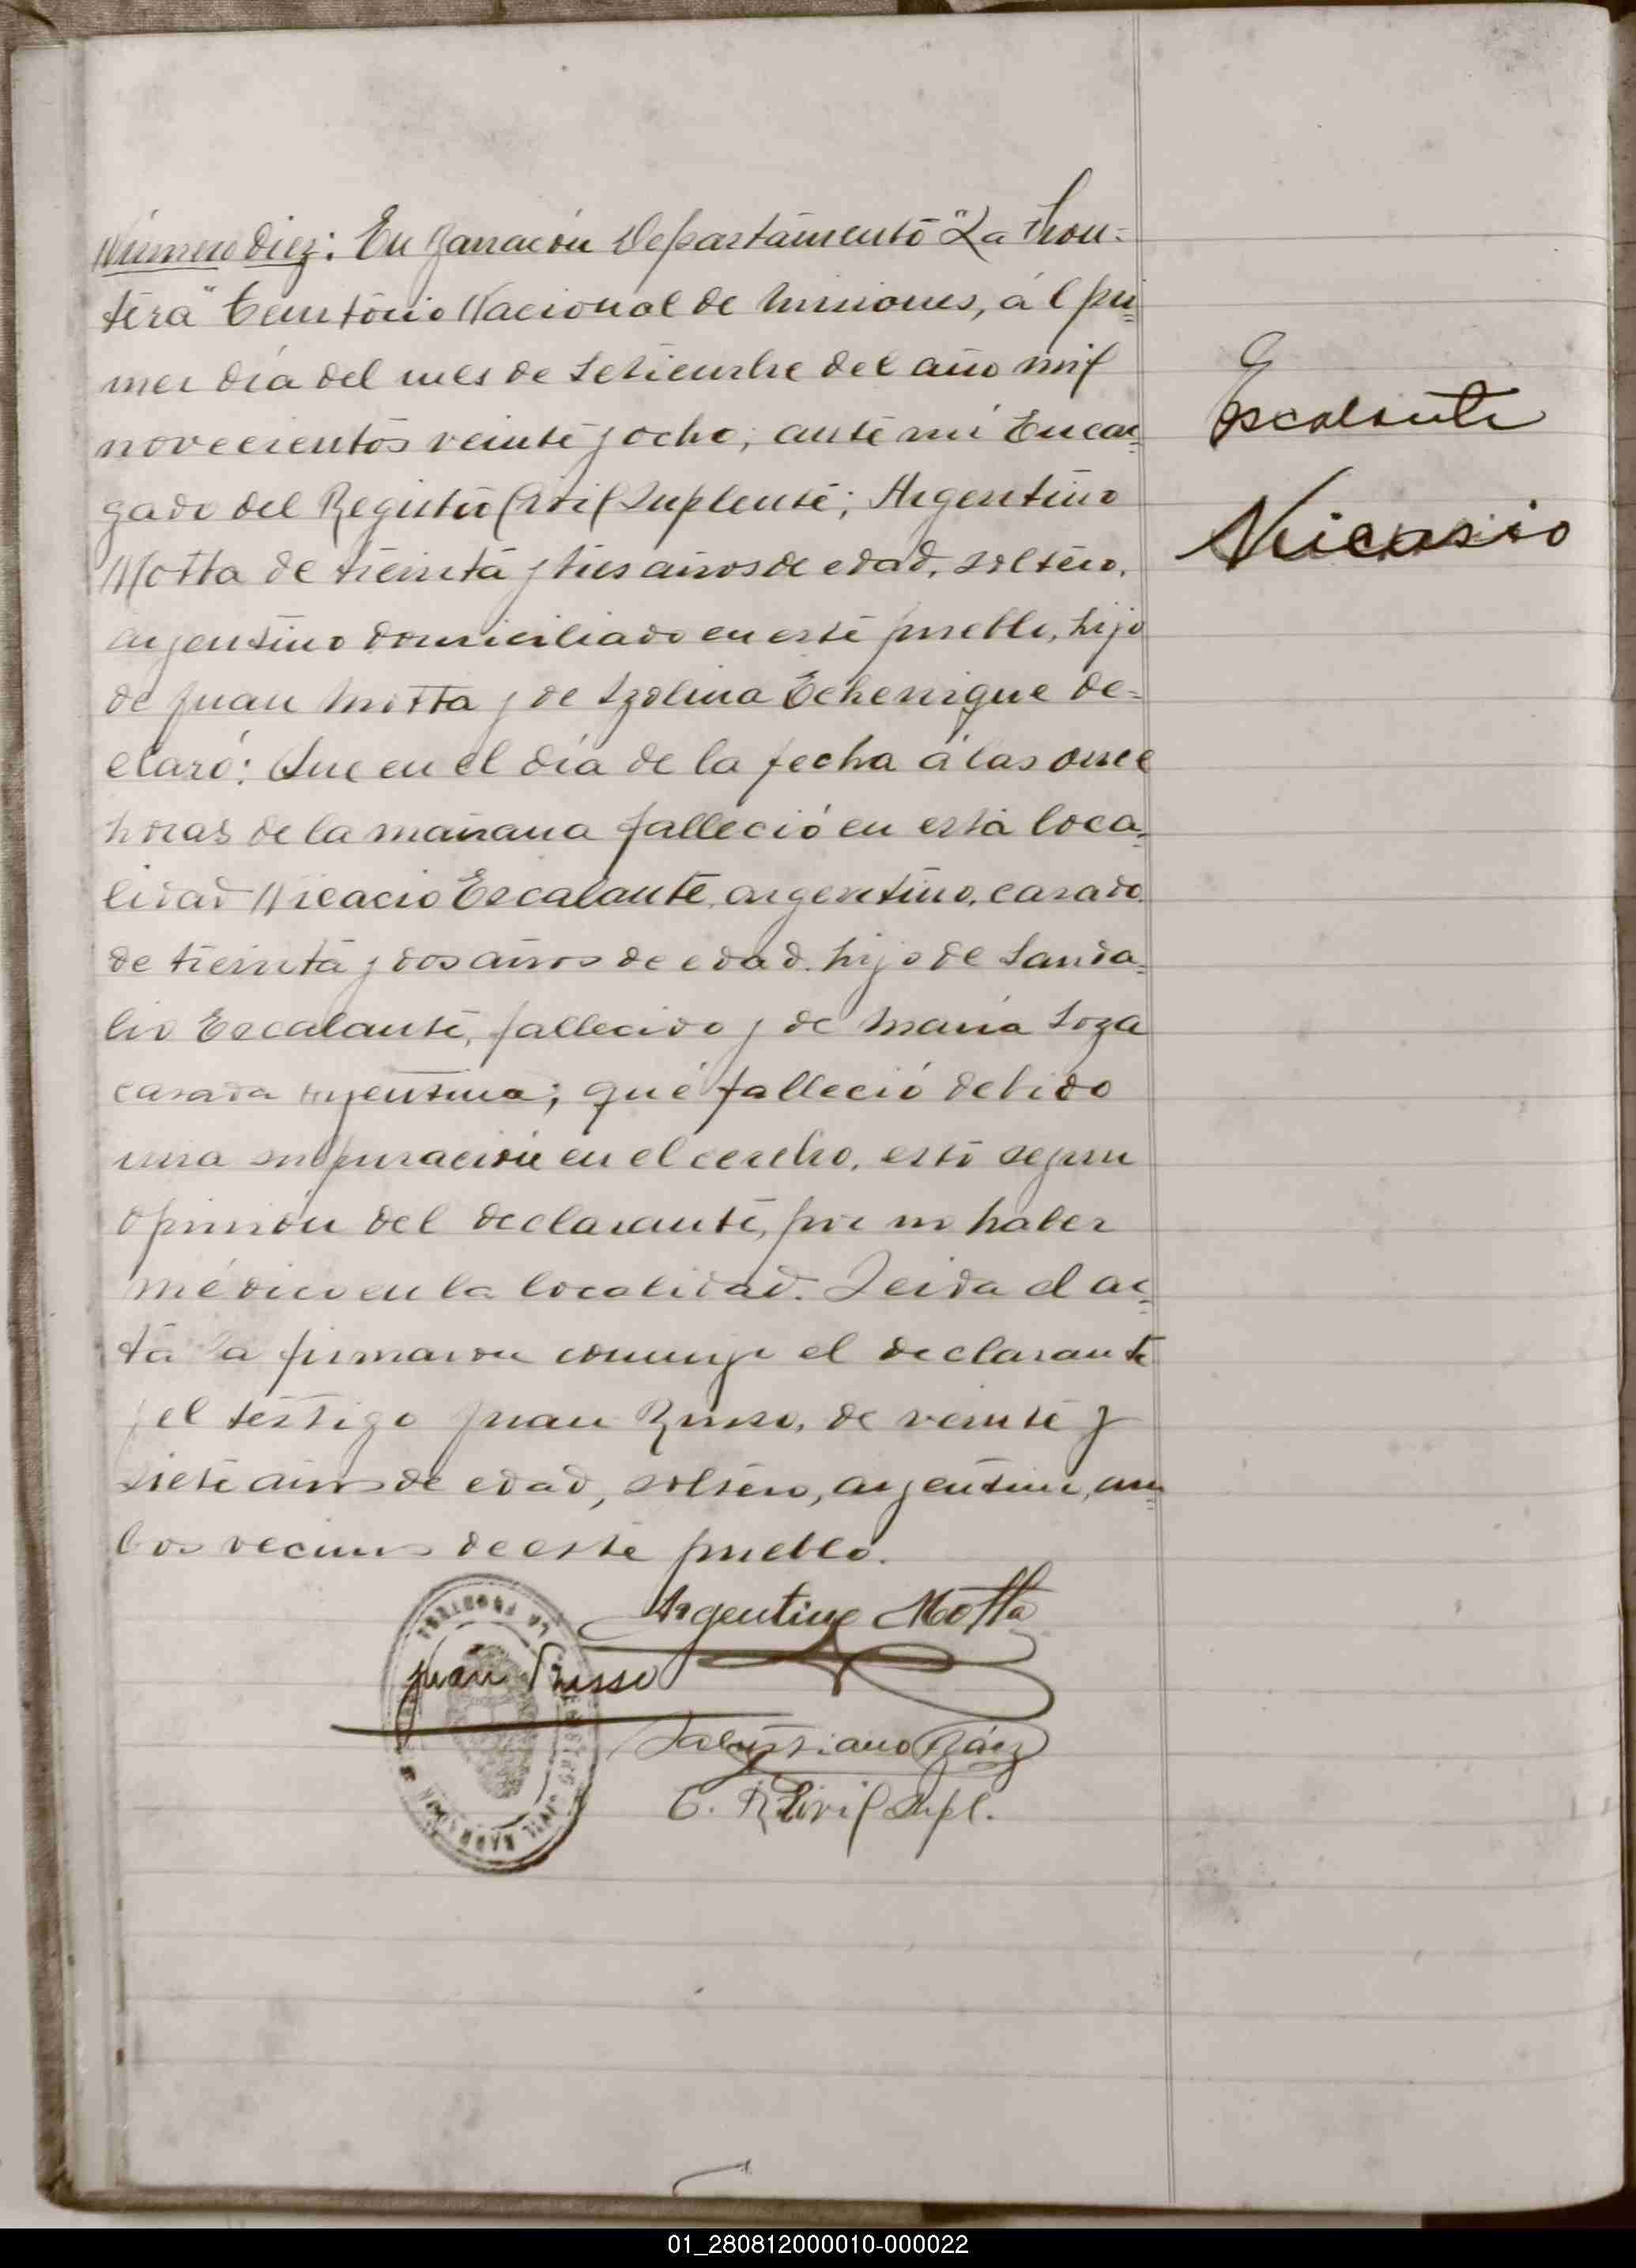 Número diez: En Barracón Departamento "La Fron-
tera" Territorio Nacional de Misiones, á l pri=
mer día del mes de Setiembre del año mil
novecientos veinte y ocho; ante mí Encar=
gado del Registro Civil Suplente; Argentino
Motta de treinta y tres años de edad, soltero,
argentino domiciliado en este pueblo, hijo
de Juan Motta y de Izolina Echenique de=
claró: Que en el día de la fecha á las once
horas de la mañana falleció en esta loca=
lidad Nicacio Escalante, argentino, casado,
de treinta y dos años de edad, hijo de Sanda=
lio Escalante, fallecido y de María Soza
casada argentina; qué falleció debido
una supuración en el cerebro, esto segun
opinión del declarante, por no haber
médico en la localidad. Leida el ac=
ta la firmaron conmigo el declarante
y el testigo Juan Russo, de veinte y
siete años de edad, soltero, argentino, am=
bos vecinos de este pueblo.
Argentino Motta
Juan Russo
Salustiano Báez
E. R. Civil Supl.
Escalante
Nicasio
LA FRONTERA
01_280812000010-000022